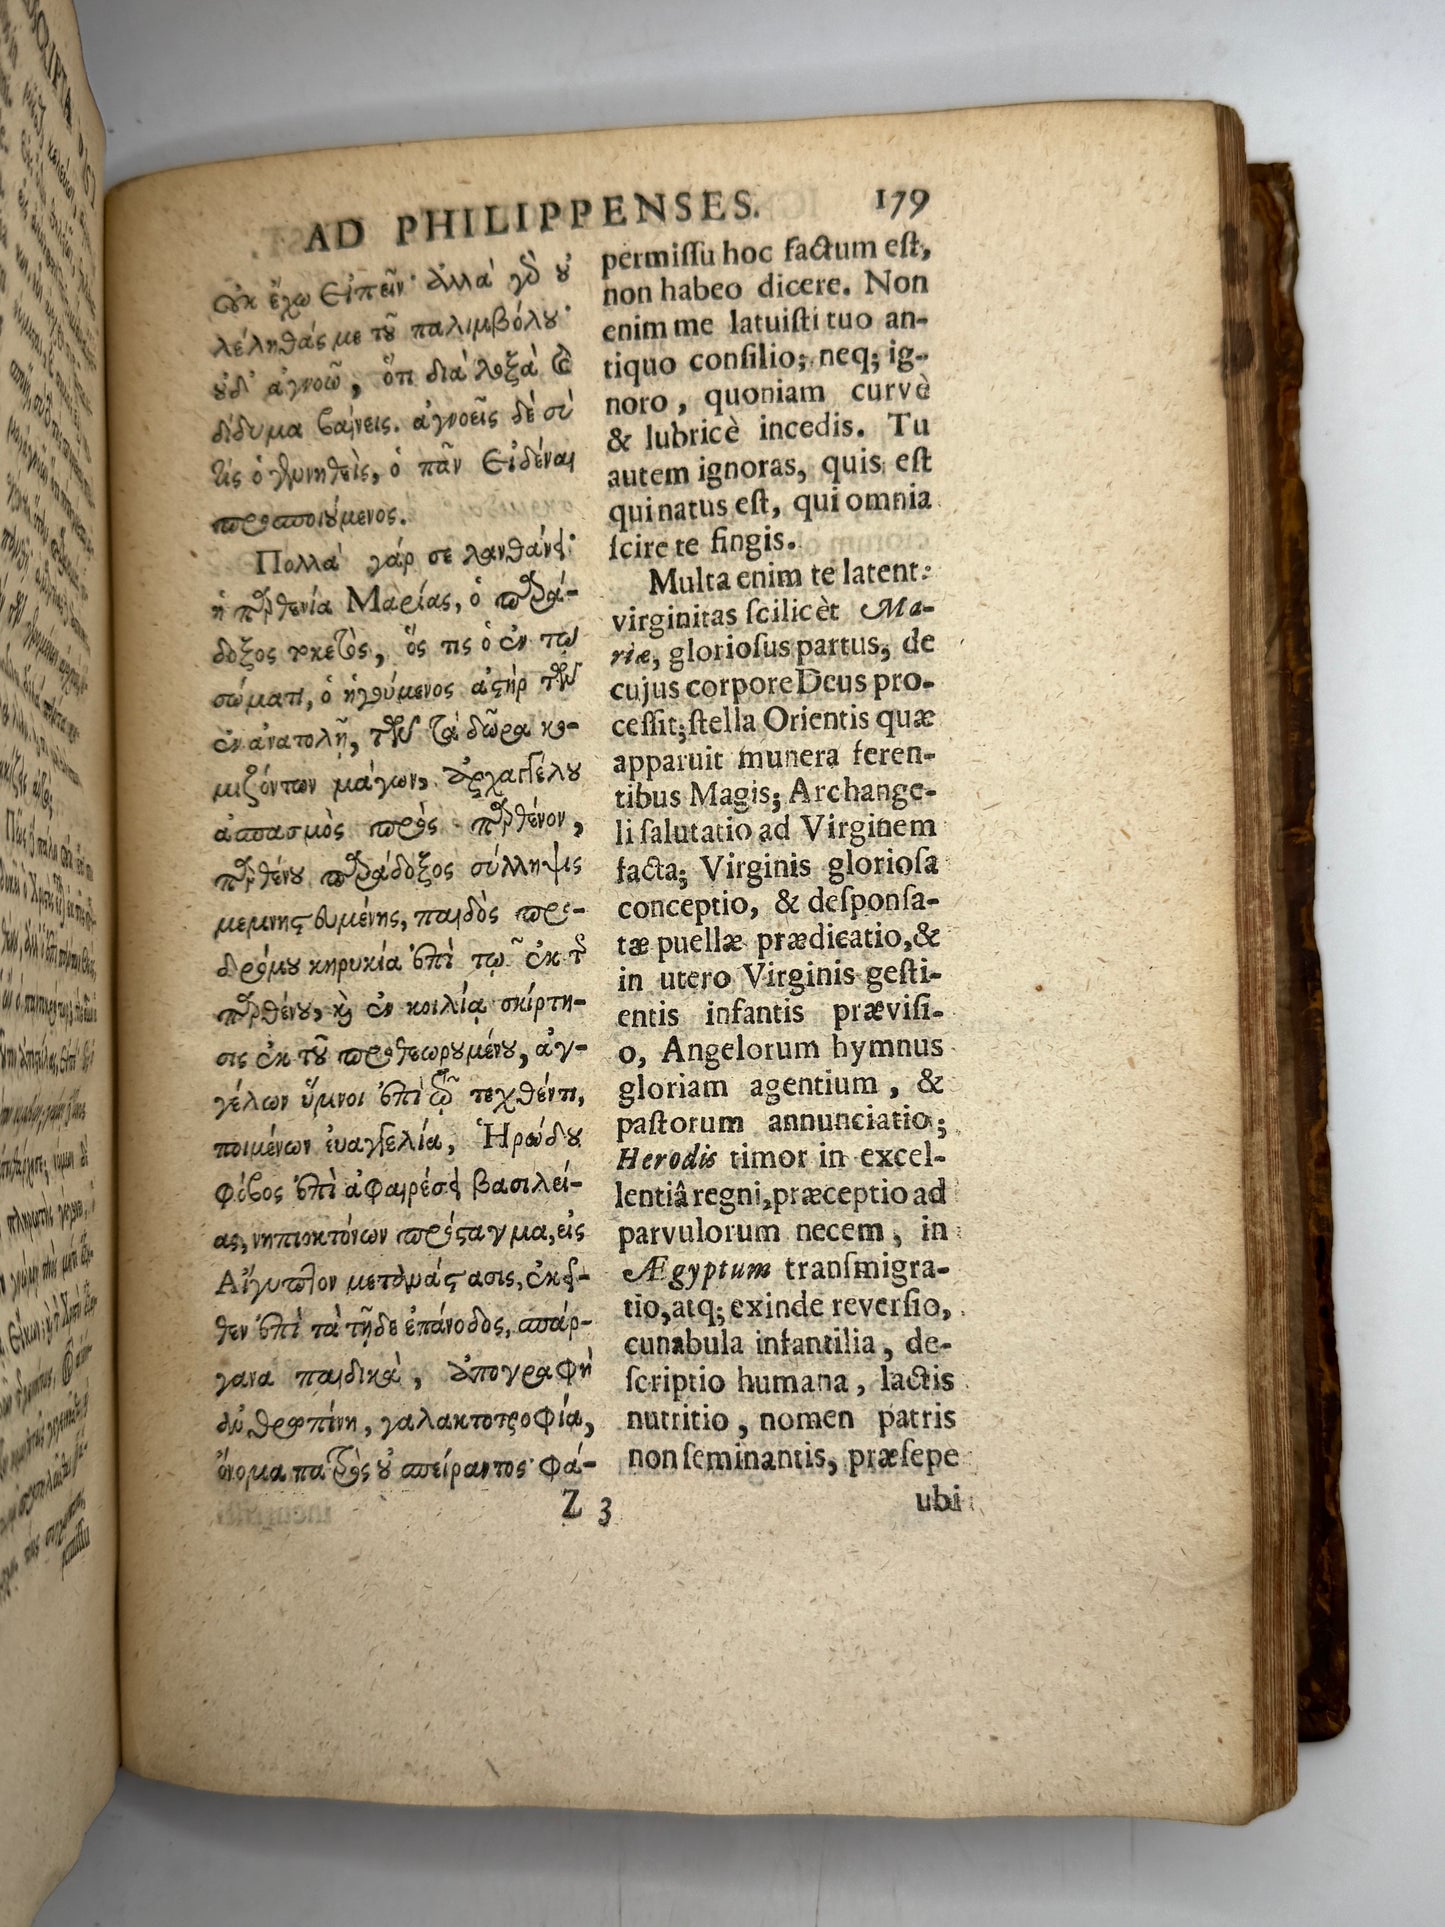 AD PHILIPPENSES. 179
οὐκ ἔχω εἰπεῖν· ἀλλὰ γὸ οὐ
λέληθάς με τοῦ παλιμβόλου·
οὐδ' ἀγνοῶ, ὅτι διὰ λοξὰ καὶ
δίδυμα βαίνεις. ἀγνοεῖς δὲ σὺ
τίς ὁ γεννηθεὶς, ὁ πᾶν εἰδέναι
προσποιούμενος.
Πολλὰ γάρ σε λανθάνει·
ἡ παρθενία Μαρίας, ὁ παρά-
δοξος τοκετὸς, ὅς τις ὁ ἐν τῷ
σώματι, ὁ ἡγούμενος ἀστὴρ τῶν
ἐν ἀνατολῇ, τῶν τὰ δῶρα κο-
μιζόντων μάγων, ἀρχαγγέλου
ἀσπασμὸς πρὸς παρθένον,
παρθένου παράδοξος σύλληψις
μεμνηστευμένης, παιδὸς προ-
δρόμου κηρυκία ἐπὶ τῷ ἐκ τ
παρθένου, καὶ ἐν κοιλίᾳ σκίρτη-
σις ἐκ τοῦ προθεωρουμένου, ἀγ-
γέλων ὕμνοι ἐπὶ τῷ τεχθέντι,
ποιμένων εὐαγγελία, Ἡρώδου
φόβος ἐπὶ ἀφαιρέσει βασιλεί-
ας, νηπιοκτόνων πρόσταγμα, εἰς
Αἴγυπτον μετανάστασις, ἐκεῖ-
θεν ἐπὶ τὰ τῇδε ἐπάνοδος, σπάρ-
γανα παιδικὰ, ἀπογραφὴ
ἀνθρωπίνη, γαλακτοτροφία,
ὄνομα πατρὸς οὐ σπείραντος· φά-
permiſſu hoc factum eſt,
non habeo dicere. Non
enim me latuiſti tuo an-
tiquo conſilio; neq; ig-
noro, quoniam curvè
& lubricè incedis. Tu
autem ignoras, quis eſt
qui natus eſt, qui omnia
ſcire te fingis.
Multa enim te latent:
virginitas ſcilicèt Ma-
riæ, glorioſus partus, de
cujus corpore Deus pro-
ceſſit; ſtella Orientis quæ
apparuit munera feren-
tibus Magis; Archange-
li ſalutatio ad Virginem
facta; Virginis glorioſa
conceptio, & deſponſa-
tæ puellæ prædicatio, &
in utero Virginis geſti-
entis infantis præviſi-
o, Angelorum hymnus
gloriam agentium, &
paſtorum annunciatio;
Herodis timor in excel-
lentiâ regni, præceptio ad
parvulorum necem, in
Ægyptum tranſmigra-
tio, atq; exinde reverſio,
cunabula infantilia, de-
ſcriptio humana, lactis
nutritio, nomen patris
non ſeminantis, præſepe
Z 3 ubi